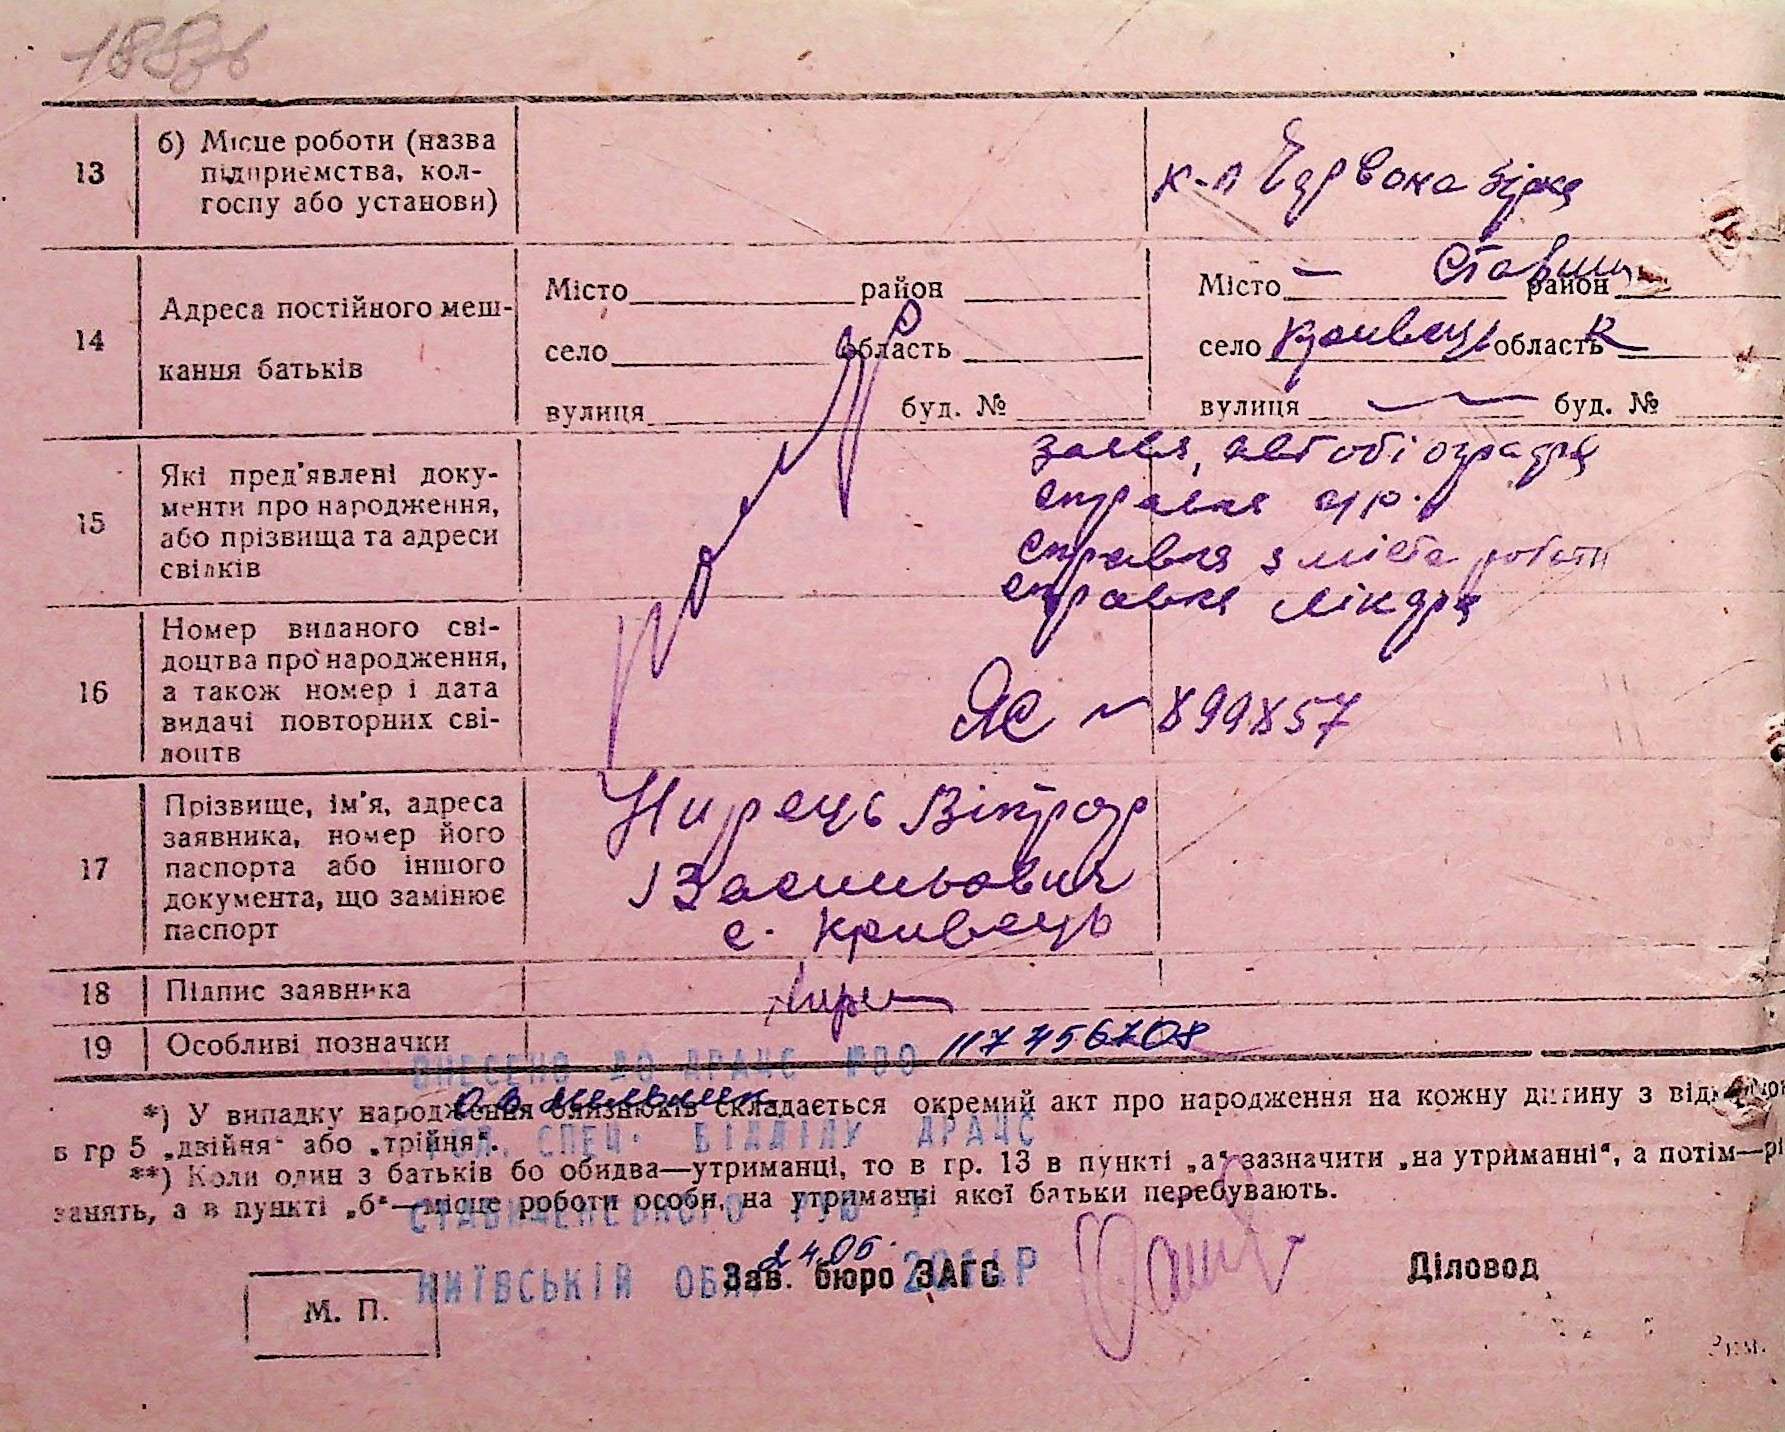 188зв
13
б) Місце роботи (назва
підприємства, кол-
госпу або установи)
к-п Червона зірка
14
Адреса постійного меш-
кання батьків
Місто район
село область
вулиця буд. №
Місто — Ставищ район
село Кривець область К
вулиця — буд. №
15
Які пред'явлені доку-
менти про народження,
або прізвища та адреси
свідків
заява, автобіографія
справка
справка з міста роботи
справка лікаря
16
Номер виданого сві-
доцтва про народження,
а також номер і дата
видачі повторних сві-
доцтв
ЯС ~ 899857
17
Прізвище, ім'я, адреса
заявника, номер його
паспорта або іншого
документа, що замінює
паспорт
Вікто́р
Васильович
с. Кривець
18
Підпис заявника
19
Особливі позначки
117456708
ВНЕСЕНО ДО ДРАЦС
*) У випадку народження близнюків складається окремий акт про народження на кожну дитину з
в гр 5 „двійня“ або „трійня“.
СПЕЦ. ВІДДІЛУ ДРАЦС
**) Коли один з батьків бо обидва—утриманці, то в гр. 13 в пункті „а“ зазначити „на утриманні“, а потім—рі
занять, а в пункті „б“—місце роботи особи, на утриманні якої батьки перебувають.
СТАВИЩЕНСЬКОГО РУЮ
24.05.
КИЇВСЬКІЙ ОБЛ. Р
Зав. бюро ЗАГС
Діловод
М. П.